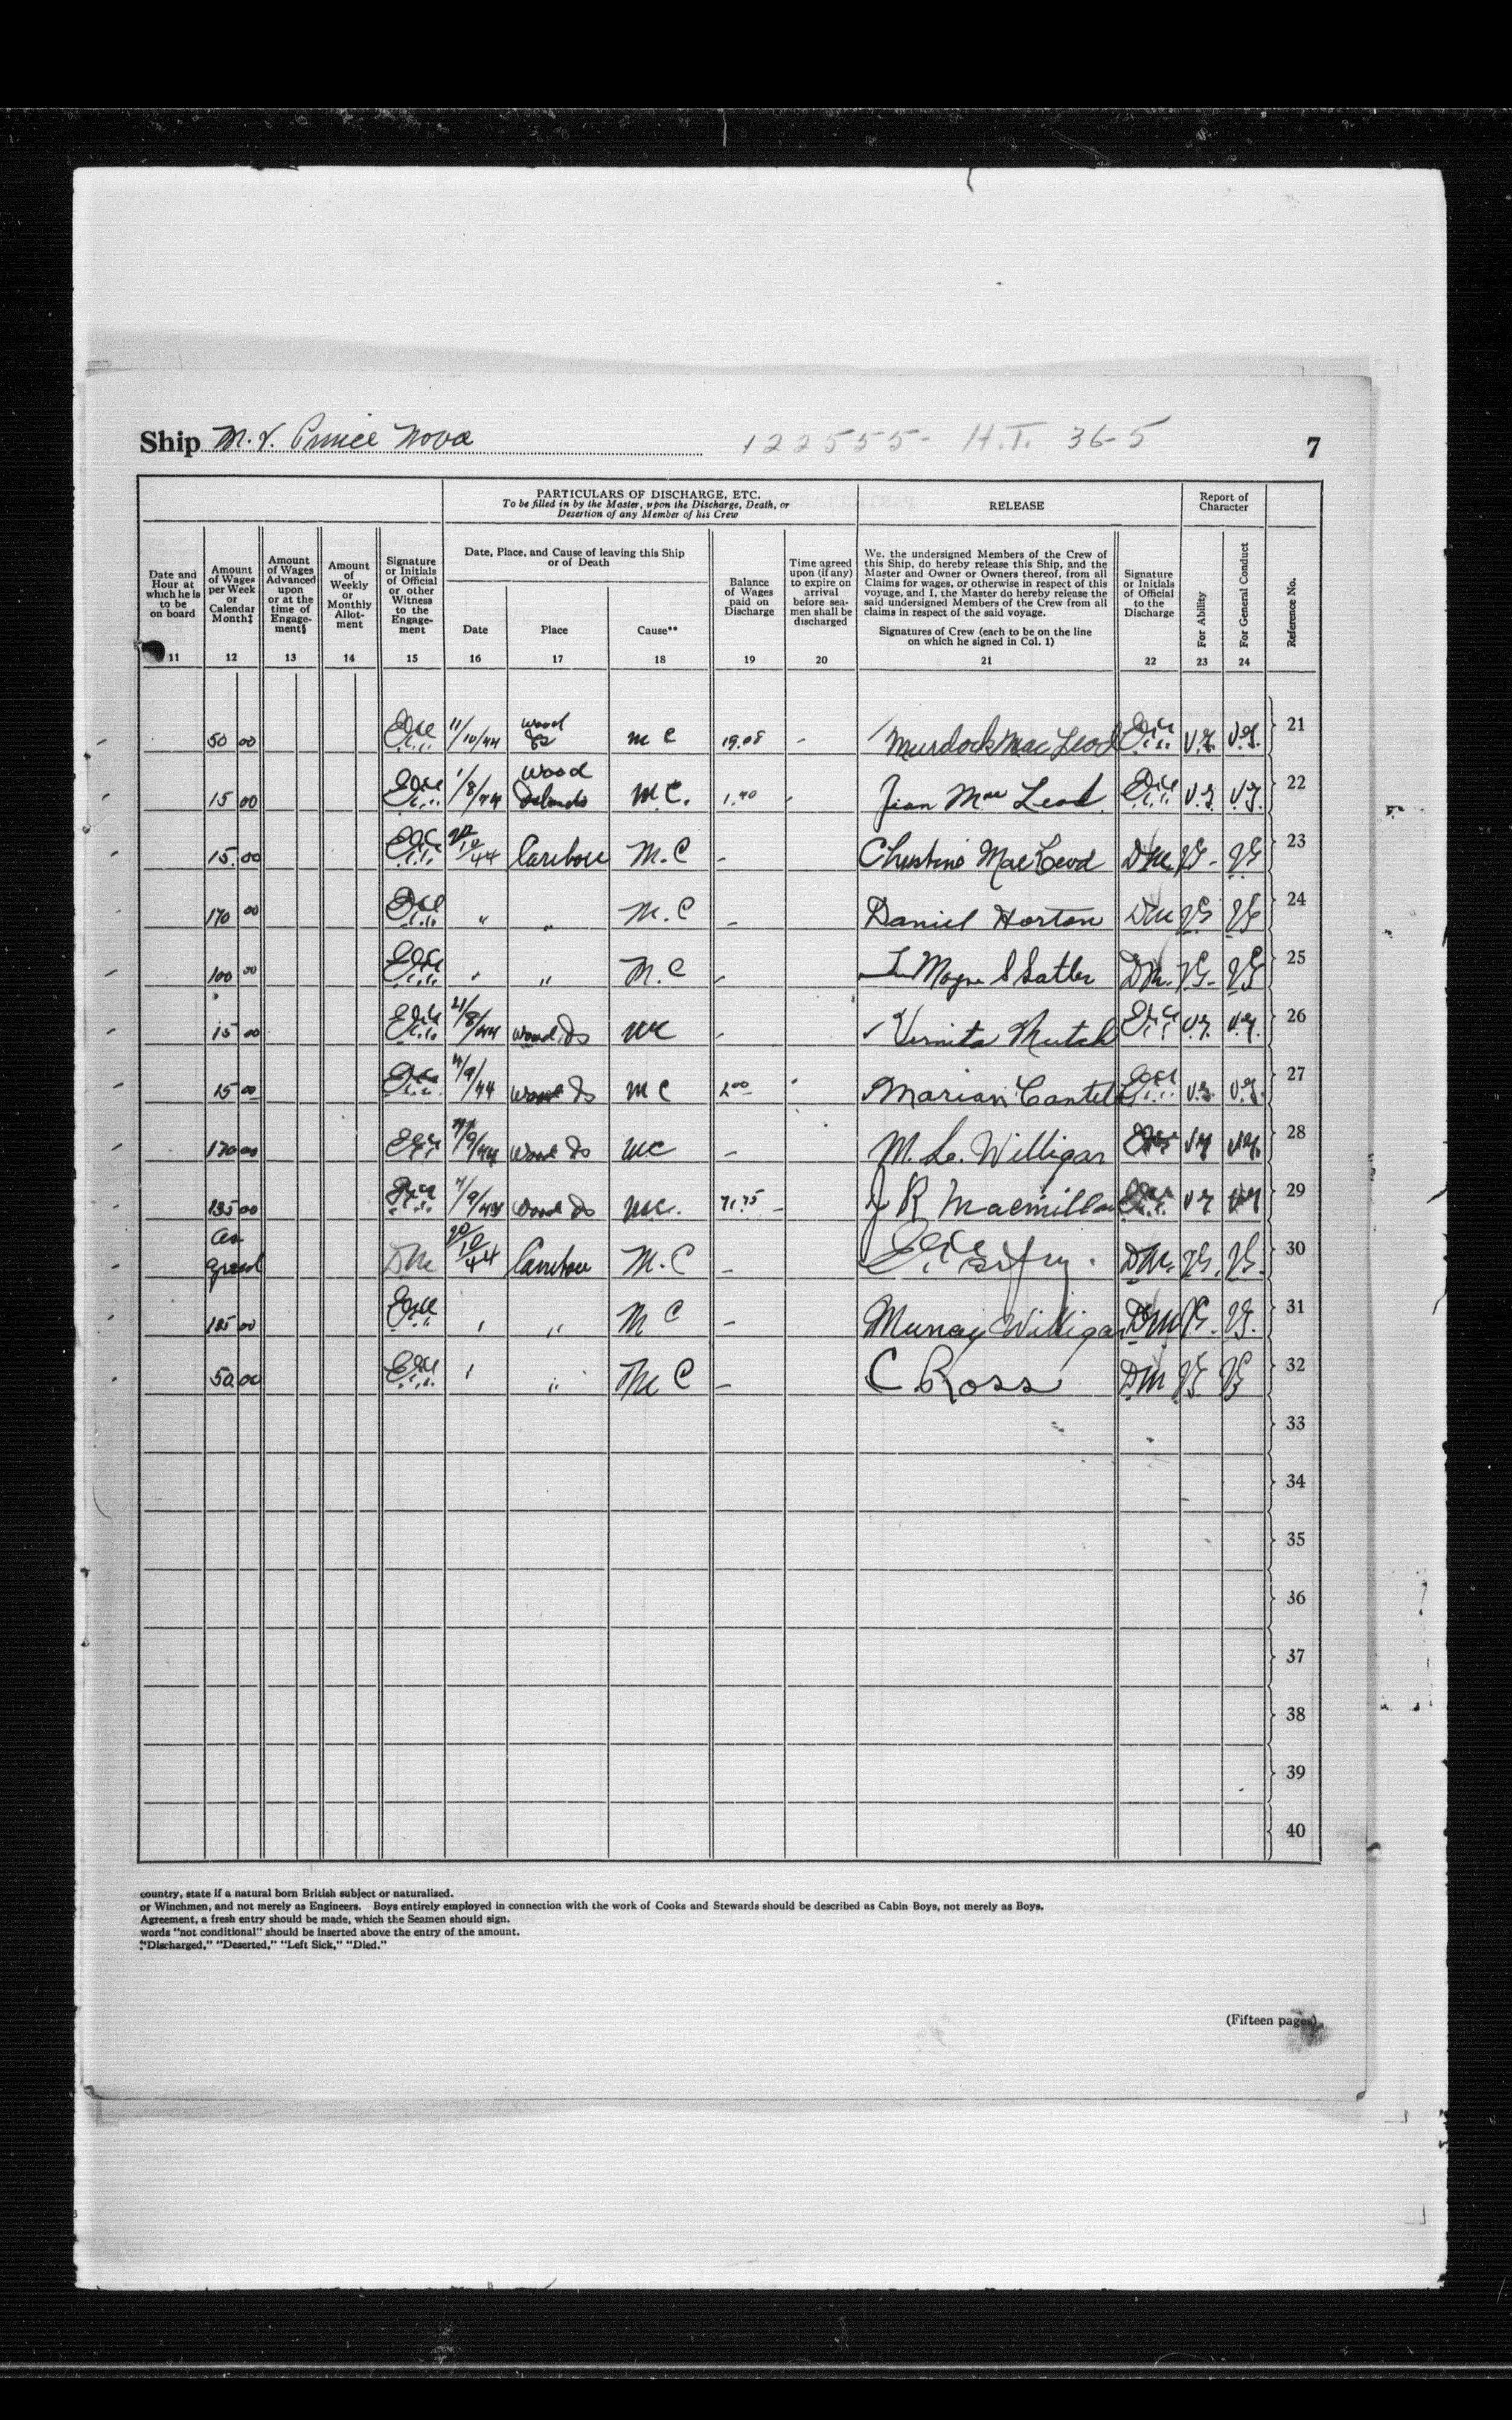 Ship M.V. Prince Nova 122555- H.T. 36-5 7
PARTICULARS OF DISCHARGE, ETC.
To be filled in by the Master, upon the Discharge, Death, or
Desertion of any Member of his Crew
RELEASE
Report of
Character
Date and
Hour at
which he is
to be
on board
Amount
of Wages
per Week
or
Calendar
Month‡
Amount
of Wages
Advanced
upon
or at the
time of
Engage-
ment§
Amount
of
Weekly
or
Monthly
Allot-
ment
Signature
or Initials
of Official
or other
Witness
to the
Engage-
ment
Date, Place, and Cause of leaving this Ship
or of Death
Date
Place
Cause**
Balance
of Wages
paid on
Discharge
Time agreed
upon (if any)
to expire on
arrival
before sea-
men shall be
discharged
We, the undersigned Members of the Crew of
this Ship, do hereby release this Ship, and the
Master and Owner or Owners thereof, from all
Claims for wages, or otherwise in respect of this
voyage, and I, the Master do hereby release the
said undersigned Members of the Crew from all
claims in respect of the said voyage.
Signatures of Crew (each to be on the line
on which he signed in Col. 1)
Signature
or Initials
of Official
to the
Discharge
For Ability
For General Conduct
Reference No.
11 12 13 14 15 16 17 18 19 20 21 22 23 24
50 00 11/10/44 Wood M C 19.08 - Murdock MacLeod V.G. V.G. 21
15 00 1/8/44 Wood Islands M.C. 1.40 Jean Mac Leod V.G. V.G. 22
15.00 20/10/44 Caribou M.C - Christine MacLeod DM. VG - VG 23
170 00 " " M.C - Daniel Horton DM VG VG 24
100 00 " " M.C - DM. VG - VG 25
15 00 21/8/44 Wood Is MC - Vernita Mutch V.G. V.G. 26
15 00 4/9/44 Wood Is MC 2 00 Marian Cantel V.G. V.G. 27
170 00 Wood Is MC - M. L. Willigar VG VG. 28
135 00 7/9/44 Wood Is MC. 71.75 - J R Macmillan VG VG 29
as agreed DM 20/10/44 Caribou M.C - DM. VG. VG. 30
125 00 " " M C - Murray Willigar DM VG. VG. 31
50.00 " " M C - C Ross DM VG VG 32
33
34
35
36
37
38
39
40
country, state if a natural born British subject or naturalized.
or Winchmen, and not merely as Engineers. Boys entirely employed in connection with the work of Cooks and Stewards should be described as Cabin Boys, not merely as Boys.
Agreement, a fresh entry should be made, which the Seamen should sign.
words "not conditional" should be inserted above the entry of the amount.
"Discharged," "Deserted," "Left Sick," "Died."
(Fifteen pages)